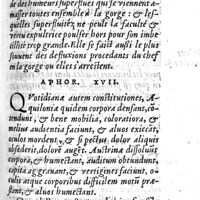 de des humeurs superflues qui se viennent a-
masser toutes ensemble à la gorge: & les-
quelles superfluitez ne peut la faculté &
vertu expultrice pousser hors pour son imbe-
cillité trop grande. Elle se faict aussi le plus
souvent des defluxions procedants du chef
en la gorge ou elles s'arrestent.
APHOR. XVII.
QVotidianæ autem constitutiones, A-
quilonia quidem corpora densant, co-
tendunt, & bene mobilia, coloratiora, &
melius audientia faciunt, & aluos exiccat,
oculos mordent, & si pectus dolor aliquis
obsederit, dolorē auget. Austrinæ dissoluūt
corpora, & humectant, auditum obtundunt,
capita aggrauant, & vertigines faciunt, o-
culis atque corporibus difficilem motū præ-
stant, & aluos humectant.